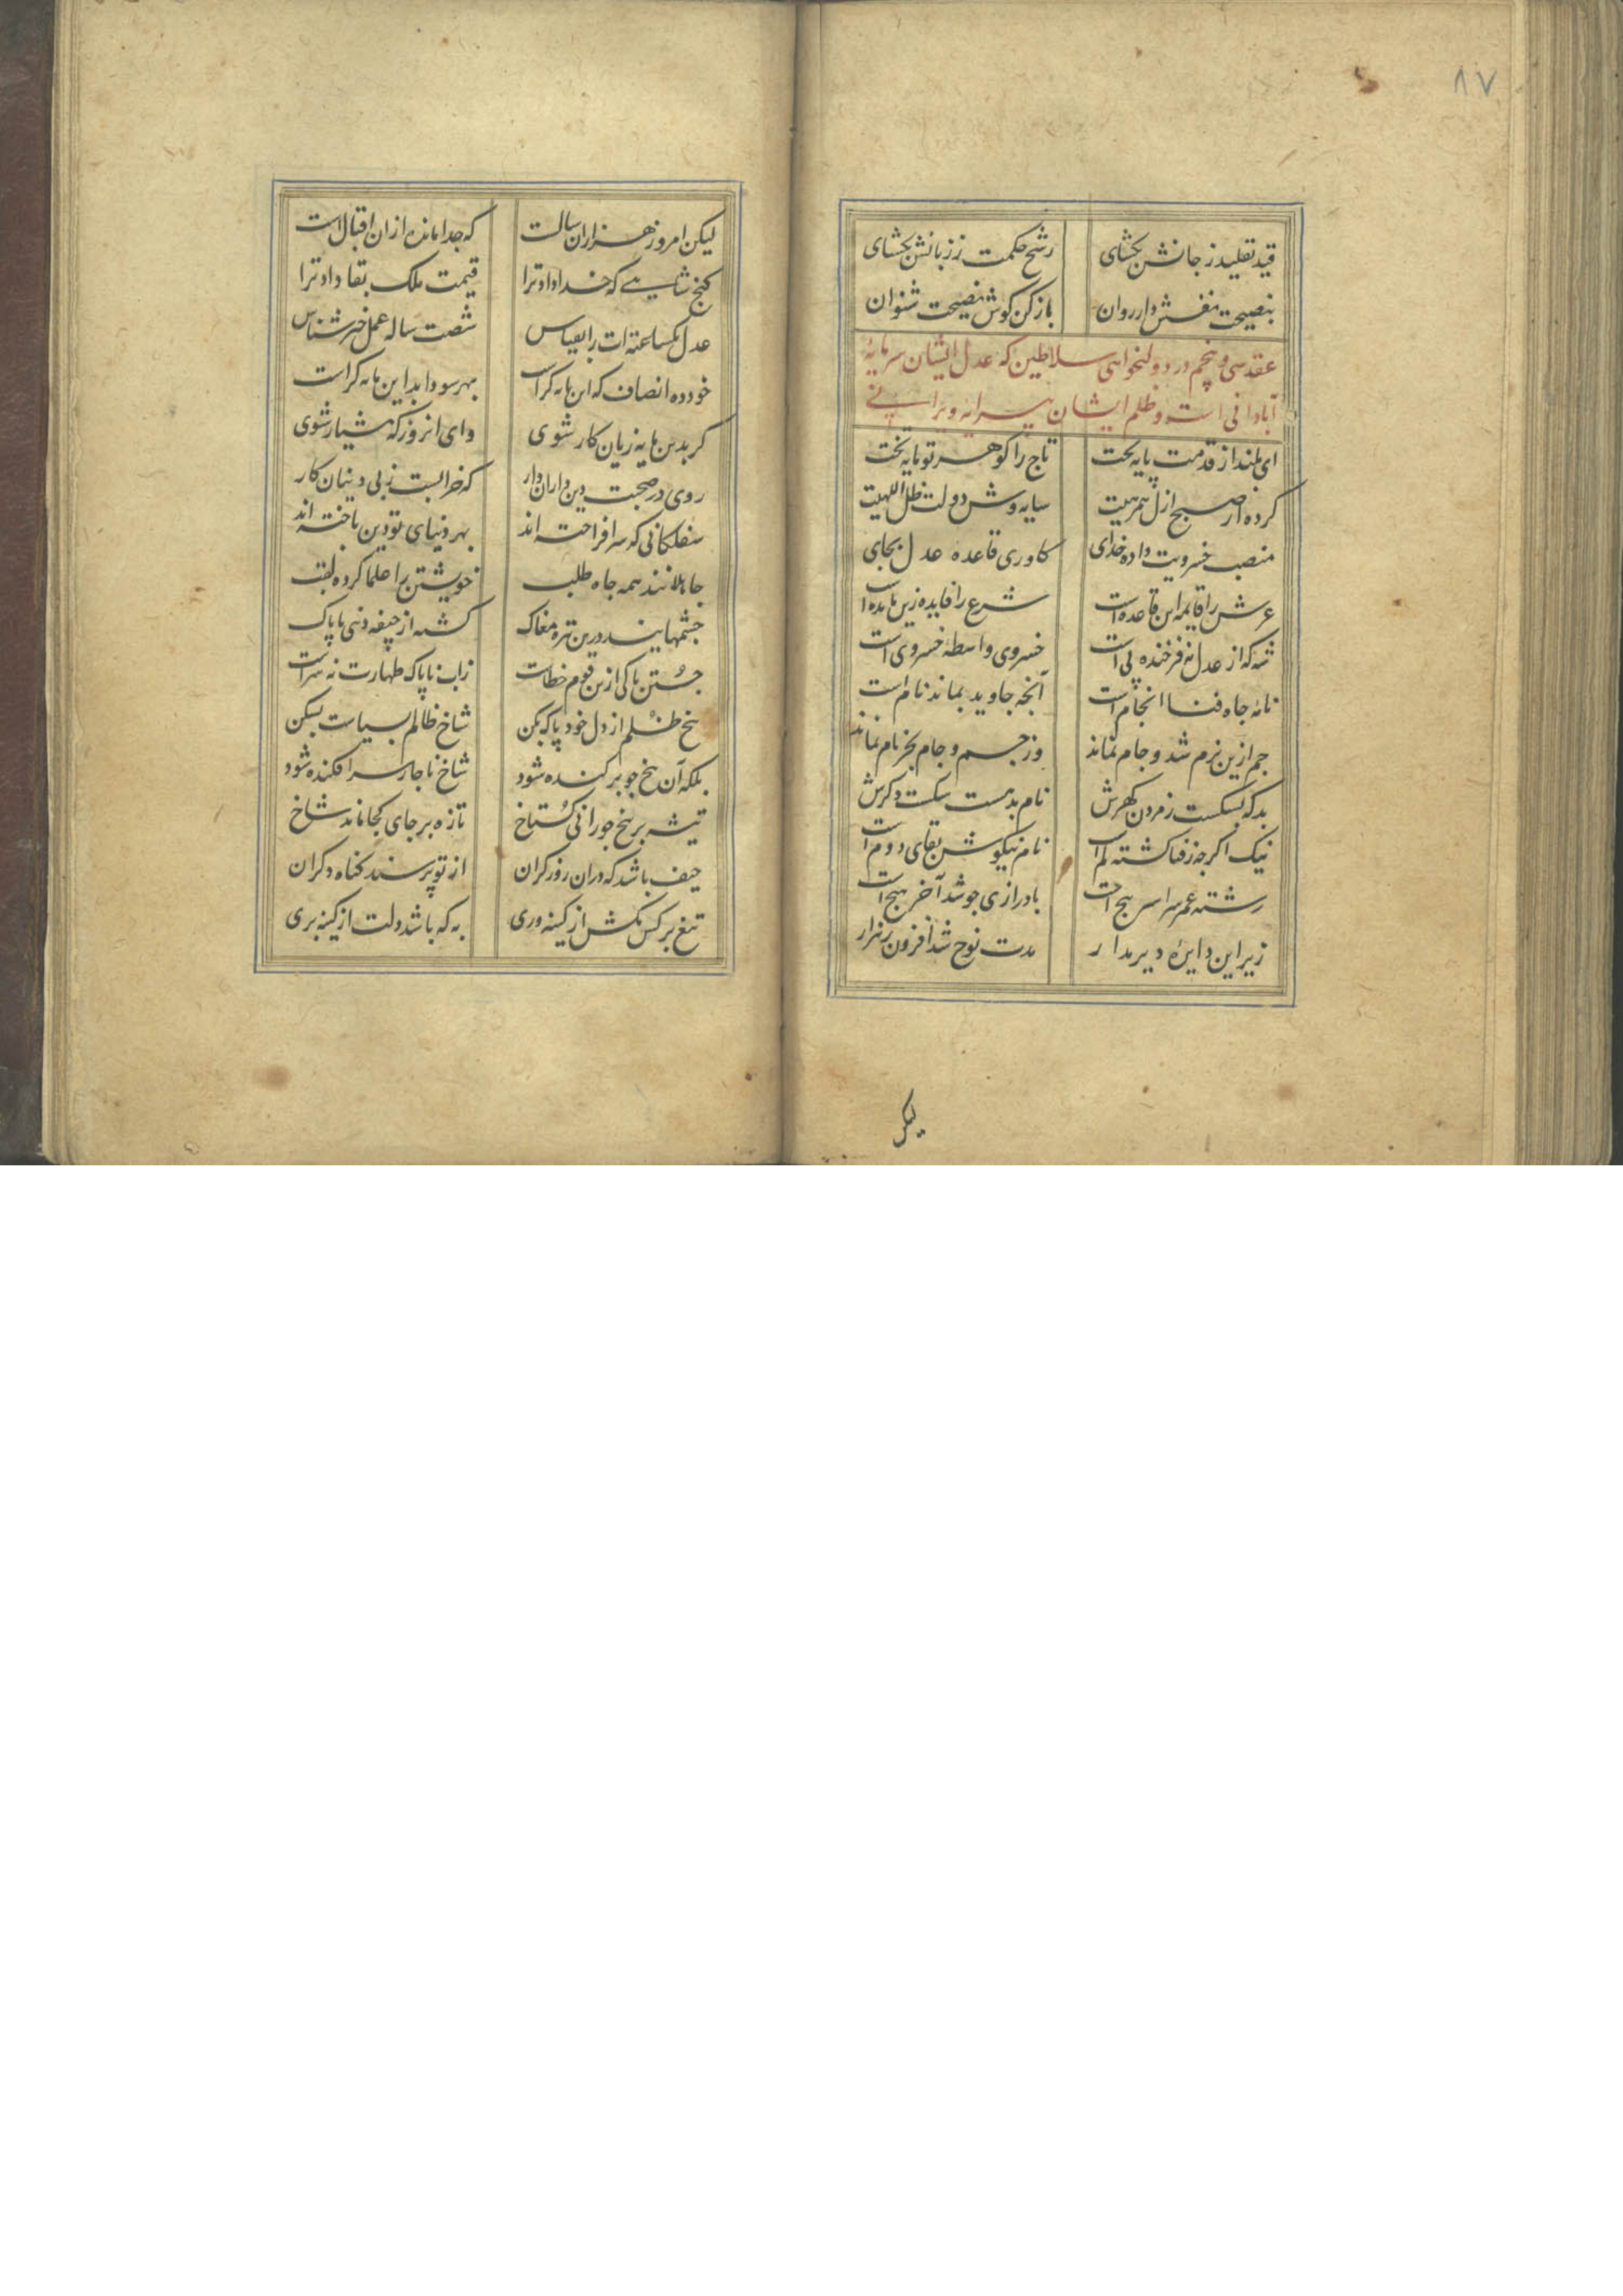 ۸۷
قید تقلید ز جانش بگشای رشح حکمت ز زبانش بگشای
بنصیحت نفسش دار روان باز کن گوش نصیحت شنوان
عقد سی و پنجم در دولتخواهی سلاطین که عدل ایشان سرمایهٔ
آبادانی است و ظلم ایشان پیرایه ویرانی
ای بلند از قدمت پایه تخت تاج را گوهر تو مایه بخت
کرده از صبح ازل همرهیت سایه وش دولت ظل اللهیت
منصب خسرویت داده خدای کاوری قاعده عدل بجای
عرش را قایمه این قاعده است شرع را فایده زین مایده است
شه که از عدل نه فرخنده پی است خسروی واسطهٔ خسروی است
نامهٔ جاه فنا انجام است آنچه جاوید بماند نام است
جم ازین بزم شد و جام نماند وز جم و جام بجز نام نماند
بد که بشکست ز مردن گهرش نام بد هست شکست دگرش
نیک اگر چه ز فنا گشته کم است نام نیکوش بقای دوم است
رشته عمر سراسر پیچ است با درازی چو شد آخر هیچ است
زیر این دایرهٔ دیر مدار مدت نوح شد افزون ز هزار
لیکن
لیکن امروز هزاران سالست که جدا مانده از ان اقبال است
گنج شاهی که خدا داد ترا قیمت ملک بقا داد ترا
عدل یکساعته ات را بقیاس شصت ساله عمل خیر شناس
خود ده انصاف که این مایه کراست بهر سودا بد این مایه کراست
گر بدین مایه زیان کار شوی وای انروز که هشیار شوی
روی در صحبت دین داران دار که خرابست ز بی دینان کار
سفلگانی که سر افراخته اند بهر دنیای تو دین باخته اند
جاهلانند همه جاه طلب خویشتن را علما کرده لقب
چشمهایند درین تیره مغاک گشته از جیفه دنی ناپاک
جستن پاکی ازین قوم خطاست زاب ناپاک طهارت نه سراست
بیخ ظلم از دل خود پاک بکن شاخ ظالم بسیاست بشکن
بلکه آن بیخ چو بر کنده شود شاخ ناچار سر افکنده شود
تیشه بر بیخ چو رانی گستاخ تازه بر جای کجا ماند شاخ
حیف باشد که دران روز گران از تو پرسند گناه دگران
تیغ بر کس مکش از کینه وری به که باشد دلت از کینه بری